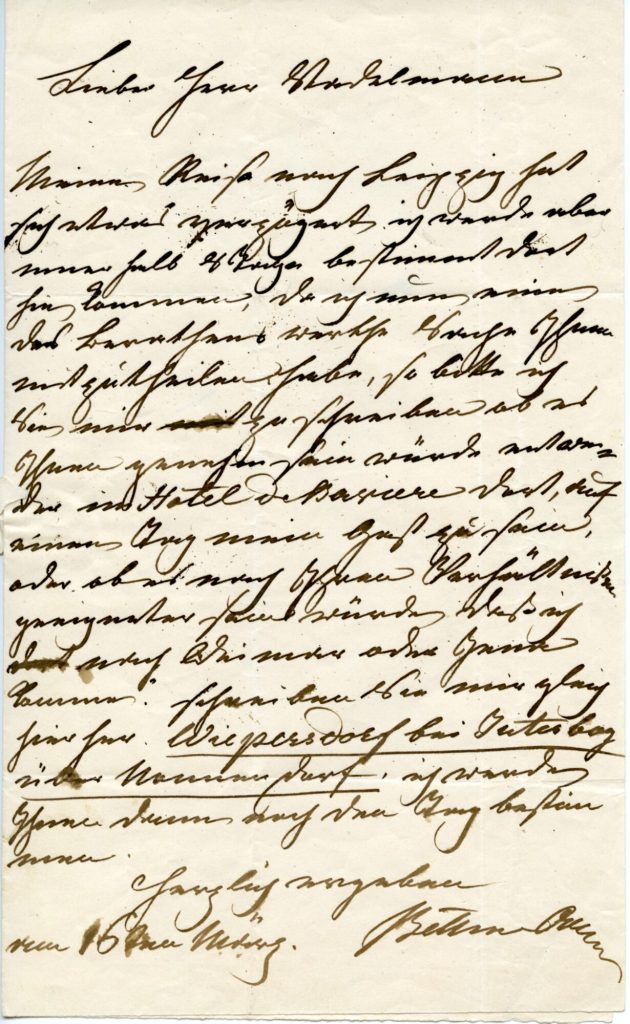 Lieber Herr Stadelmann
Meine Reise nach Leipzig hat
sich etwas verzögert ich werde aber
inner halb 8 Tage bestimmt dort
hin kommen, da ich nun eine
des berathens werthe Sache Ihnen
mitzutheilen habe, so bitte ich
Sie mir zu schreiben ob es
Ihnen genehm sein würde entwe-
der im Hotel de Baviere dort, auf
einen Tag mein Gast zu sein,
oder ob es nach Ihren Verhältnissen
geeigneter sein würde daß ich
nach Weimar oder Jena
komme. schreiben Sie mir gleich
hier her. Wiepersdorf bei Juterbog
über Nonnendorf, ich werde
Ihnen dann noch den Tag bestim
men.
herzlich ergeben
am 16ten März. Bettine